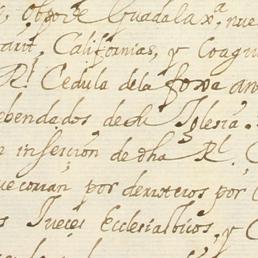 Obpo de Guadalax.ª nue
Californias, y Coagu
Rl. Cedula dela foxa an
ebendados de su Iglesia.
n insercion de dha Rl. C
ue corran por derroteros por
s Jueces Ecclesiasticos, y C